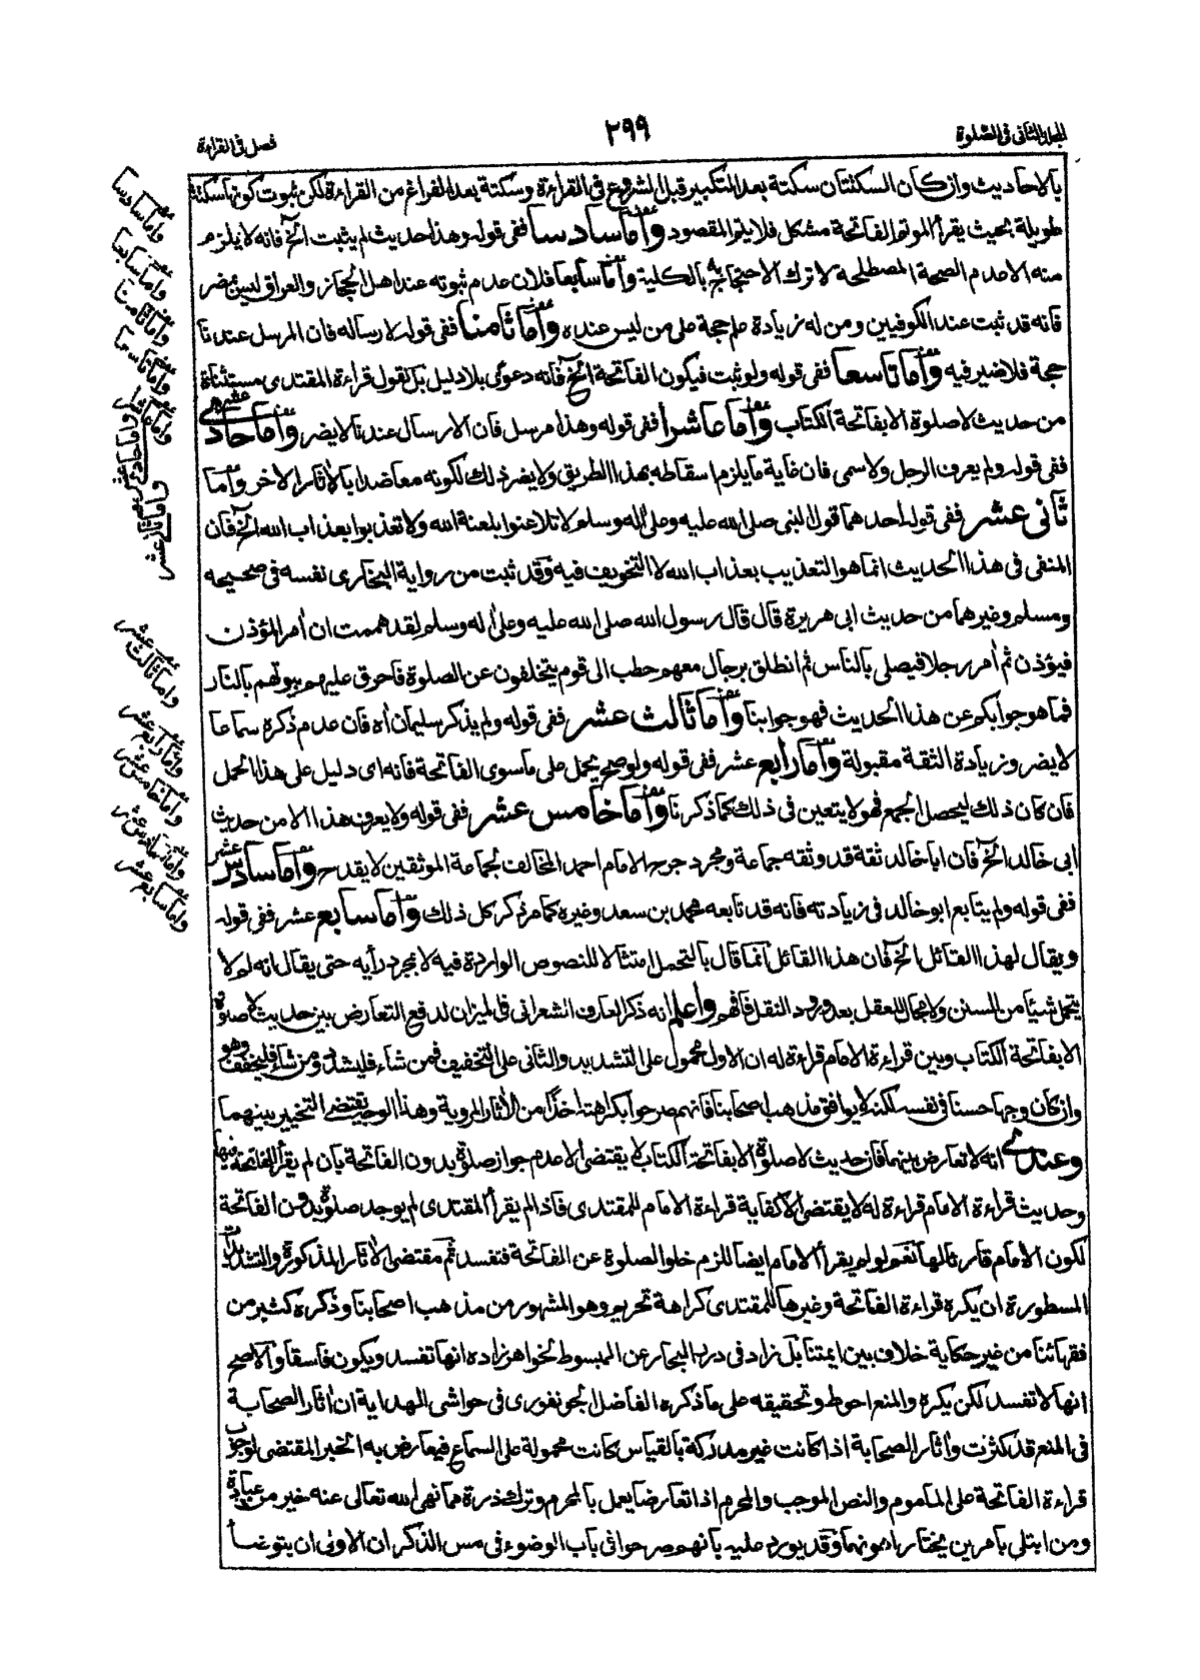 المجلد الثانى فى الصلوة
٢٩٩
فصل فى القراءة
بالاحاديث وان كان السكتتان سكتة بعد التكبير قبل الشروع فى القراءة وسكتة بعد الفراغ من القراءة لكن ثبوت كونها سكتة
طويلة بحيث يقرأ الموتم الفاتحة مشكل فلا يتم المقصود وأما سادسا ففى قوله وهذا حديث لم يثبت الخ فانه لا يلزم
منه الا عدم الصحة المصطلحة لا ترك الاحتجاج به بالكلية وأما سابعا فلان عدم ثبوته عند اهل الحجاز والعراق ليس بمضر
فانه قد ثبت عند الكوفيين ومن له زيادة علم حجة على من ليس عنده وأما ثامنا ففى قوله لارساله فان المرسل عندنا
حجة فلا ضير فيه وأما تاسعا ففى قوله ولو ثبت فيكون الفاتحة الخ فانه دعوى بلا دليل بل نقول قراءة المقتدى مستثناة
من حديث لا صلوة الا بفاتحة الكتاب وأما عاشرا ففى قوله وهذا مرسل فان الارسال عندنا لا يضر وأما حادى عشر
ففى قوله ولم يعرف الرجل ولا سمى فان غاية ما يلزم اسقاطه بهذا الطريق ولا يضر ذلك لكونه معاضدا بالأثار الاخر وأما
ثانى عشر ففى قوله احدهما قول النبى صلى الله عليه وعلى اله وسلم لا تلاعنوا بلعنة الله ولا تعذبوا بعذاب الله الخ فان
المنفى فى هذا الحديث انما هو التعذيب بعذاب الله لا التخويف فيه وقد ثبت من رواية البخارى نفسه فى صحيحه
ومسلم وغيرهما من حديث ابى هريرة قال قال رسول الله صلى الله عليه وعلى اله وسلم لقد هممت ان أمر المؤذن
فيؤذن ثم أمر رجلا فيصلى بالناس ثم انطلق برجال معهم حطب الى قوم يتخلفون عن الصلوة فاحرق عليهم بيوتهم بالنار
فما هو جوابكم عن هذا الحديث فهو جوابنا وأما ثالث عشر ففى قوله ولم يذكر سليمان اه فان عدم ذكره سماعا
لا يضر وزيادة الثقة مقبولة وأما رابع عشر ففى قوله ولو صح يحمل على ما سوى الفاتحة فانه اى دليل على هذا الحمل
فان كان ذلك ليحصل الجمع فهو لا يتعين فى ذلك كما ذكرنا وأما خامس عشر ففى قوله ولا يعرف هذا الا من حديث
ابى خالد الخ فان ابا خالد ثقة قد وثقه جماعة ومجرد جرح الامام احمد المخالف لجماعة الموثقين لا يقدح وأما سادس عشر
ففى قوله ولم يتابع ابو خالد فى زيادته فانه قد تابعه محمد بن سعد وغيره كما مر ذكر كل ذلك وأما سابع عشر ففى قوله
ويقال لهذا القائل الخ فان هذا القائل انما قال بالتحمل امتثالا للنصوص الواردة فيه لا بمجرد رأيه حتى يقال انه لم لا
يتحمل شيئا من السنن ولا مجال للعقل بعد ورود النقل فافهم واعلم انه ذكر العارف الشعرانى فى الميزان لدفع التعارض بين حديث لا صلوة
الا بفاتحة الكتاب وبين قراءة الامام قراءة له ان الاول محمول على التشديد والثانى على التخفيف فمن شاء فليشدد ومن شاء فليخفف وهو
وان كان وجها حسنا فى نفسه لكنه لا يوافق مذهب اصحابنا فانهم صرحوا بكراهته اخذا من الأثار المروية وهذا الوجه يقتضى التخيير بينهما
وعندى انه لا تعارض بينهما فان حديث لا صلوة الا بفاتحة الكتاب لا يقتضى الا عدم جواز صلوة بدون الفاتحة بان لم يقرأ الفاتحة فيها
وحديث قراءة الامام قراءة له لا يقتضى الا كفاية قراءة الامام للمقتدى فاذا لم يقرأ المقتدى لم يوجد صلوة بدون الفاتحة
لكون الامام قارئا لها نعم لو لم يقرأ الامام ايضا للزم خلو الصلوة عن الفاتحة فتفسد ثم مقتضى الأثار المذكورة والتشديدات
المسطورة ان يكره قراءة الفاتحة وغيرها للمقتدى كراهة تحريم وهو المشهور من مذهب اصحابنا وذكره كثير من
فقهائنا من غير حكاية خلاف بين ايمتنا بل زاد فى درر البحار عن المبسوط لخواهر زاده انها تفسد ويكون فاسقا والاصح
انها لا تفسد لكن يكره والمنع احوط وتحقيقه على ما ذكره الفاضل الجونفورى فى حواشى الهداية ان أثار الصحابة
فى المنع قد كثرت وأثار الصحابة اذا كانت غير مدركة بالقياس كانت محمولة على السماع فيعارض به الخبر المقتضى لوجوب
قراءة الفاتحة على المأموم والنص الموجب والمحرم اذا تعارضا يعمل بالمحرم وترك ذرة مما نهى الله تعالى عنه خير من عبادة
ومن ابتلى بامرين يختار اهونهما وقد يورد عليه بانهم صرحوا فى باب الوضوء فى مس الذكر ان الاولى ان يتوضأ
واما سادسا
واما سابعا
واما ثامنا
واما تاسعا
واما عاشرا
واما حادى عشر
واما ثالث عشر
واما رابع عشر
واما خامس عشر
واما سادس عشر
واما سابع عشر